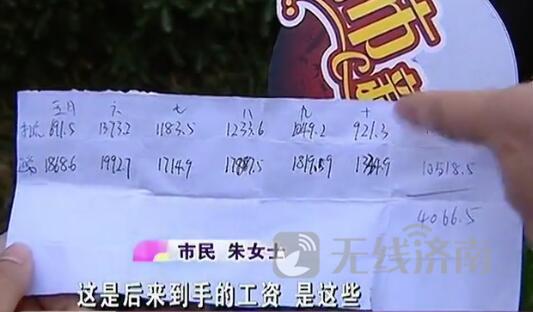 五月 六 七 八 九 十
891.5 1373.2 1183.5 1233.6 1049.2 921.3
1868.6 1992.7 1714.9 1819.59 10518.5
4066.5
市民 朱女士
无线济南
这是后来到手的工资 是这些